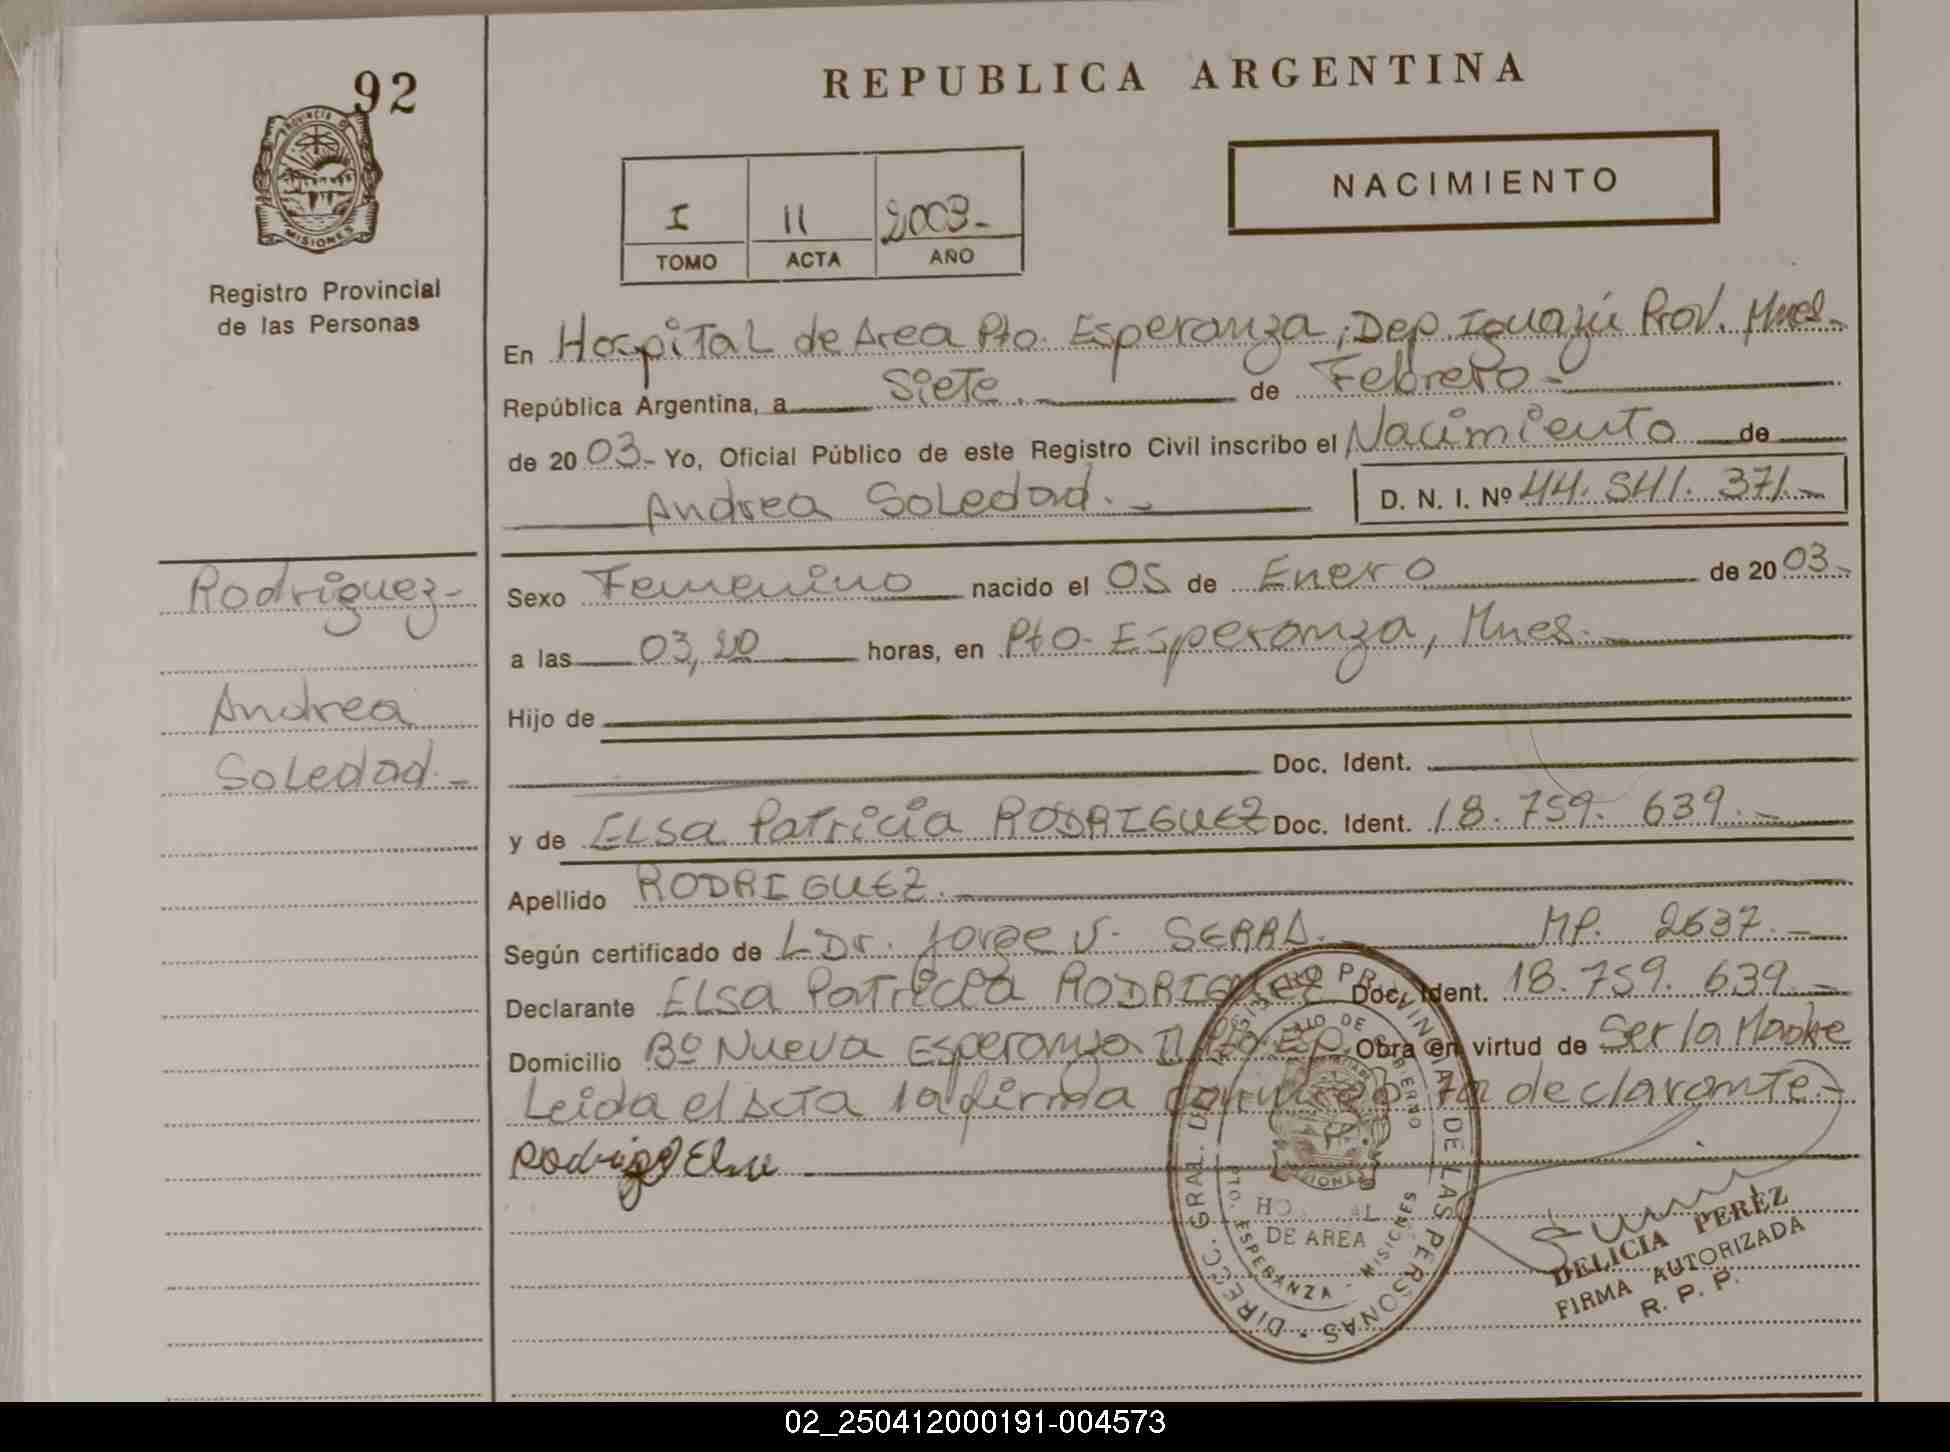 92
PROVINCIA DE
MISIONES
Registro Provincial
de las Personas
REPUBLICA ARGENTINA
NACIMIENTO
I 11 2003.-
TOMO ACTA AÑO
En Hospital de Area Pto. Esperanza, Dep. Iguazú Prov. Mnes.-
República Argentina, a Siete.- de Febrero.-
de 2003.- Yo, Oficial Público de este Registro Civil inscribo el Nacimiento de
Andrea Soledad.- D. N. I. Nº 44.541.371.-
Rodriguez.-
Andrea
Soledad.-
Sexo Femenino nacido el 05 de Enero de 2003.-
a las 03,20 horas, en Pto. Esperanza, Mnes.-
Hijo de
Doc. Ident.
y de Elsa Patricia RODRIGUEZ Doc. Ident. 18.759.639.-
Apellido RODRIGUEZ.-
Según certificado de LDr. Jorge V. SERRA. MP. 2637.-
Declarante Elsa Patricia RODRIGUEZ Doc. Ident. 18.759.639.-
Domicilio Bº Nueva Esperanza II Pto Esp. Obra en virtud de Ser la Madre
Leida el Acta la firma conmigo la declarante.-
DIRECC. GRAL. DEL REGISTRO PROVINCIAL DE LAS PERSONAS
DE GOBIERNO
MISIONES
DE AREA
PTO. ESPERANZA - MISIONES
DELICIA PEREZ
FIRMA AUTORIZADA
R. P. P.
02_250412000191-004573